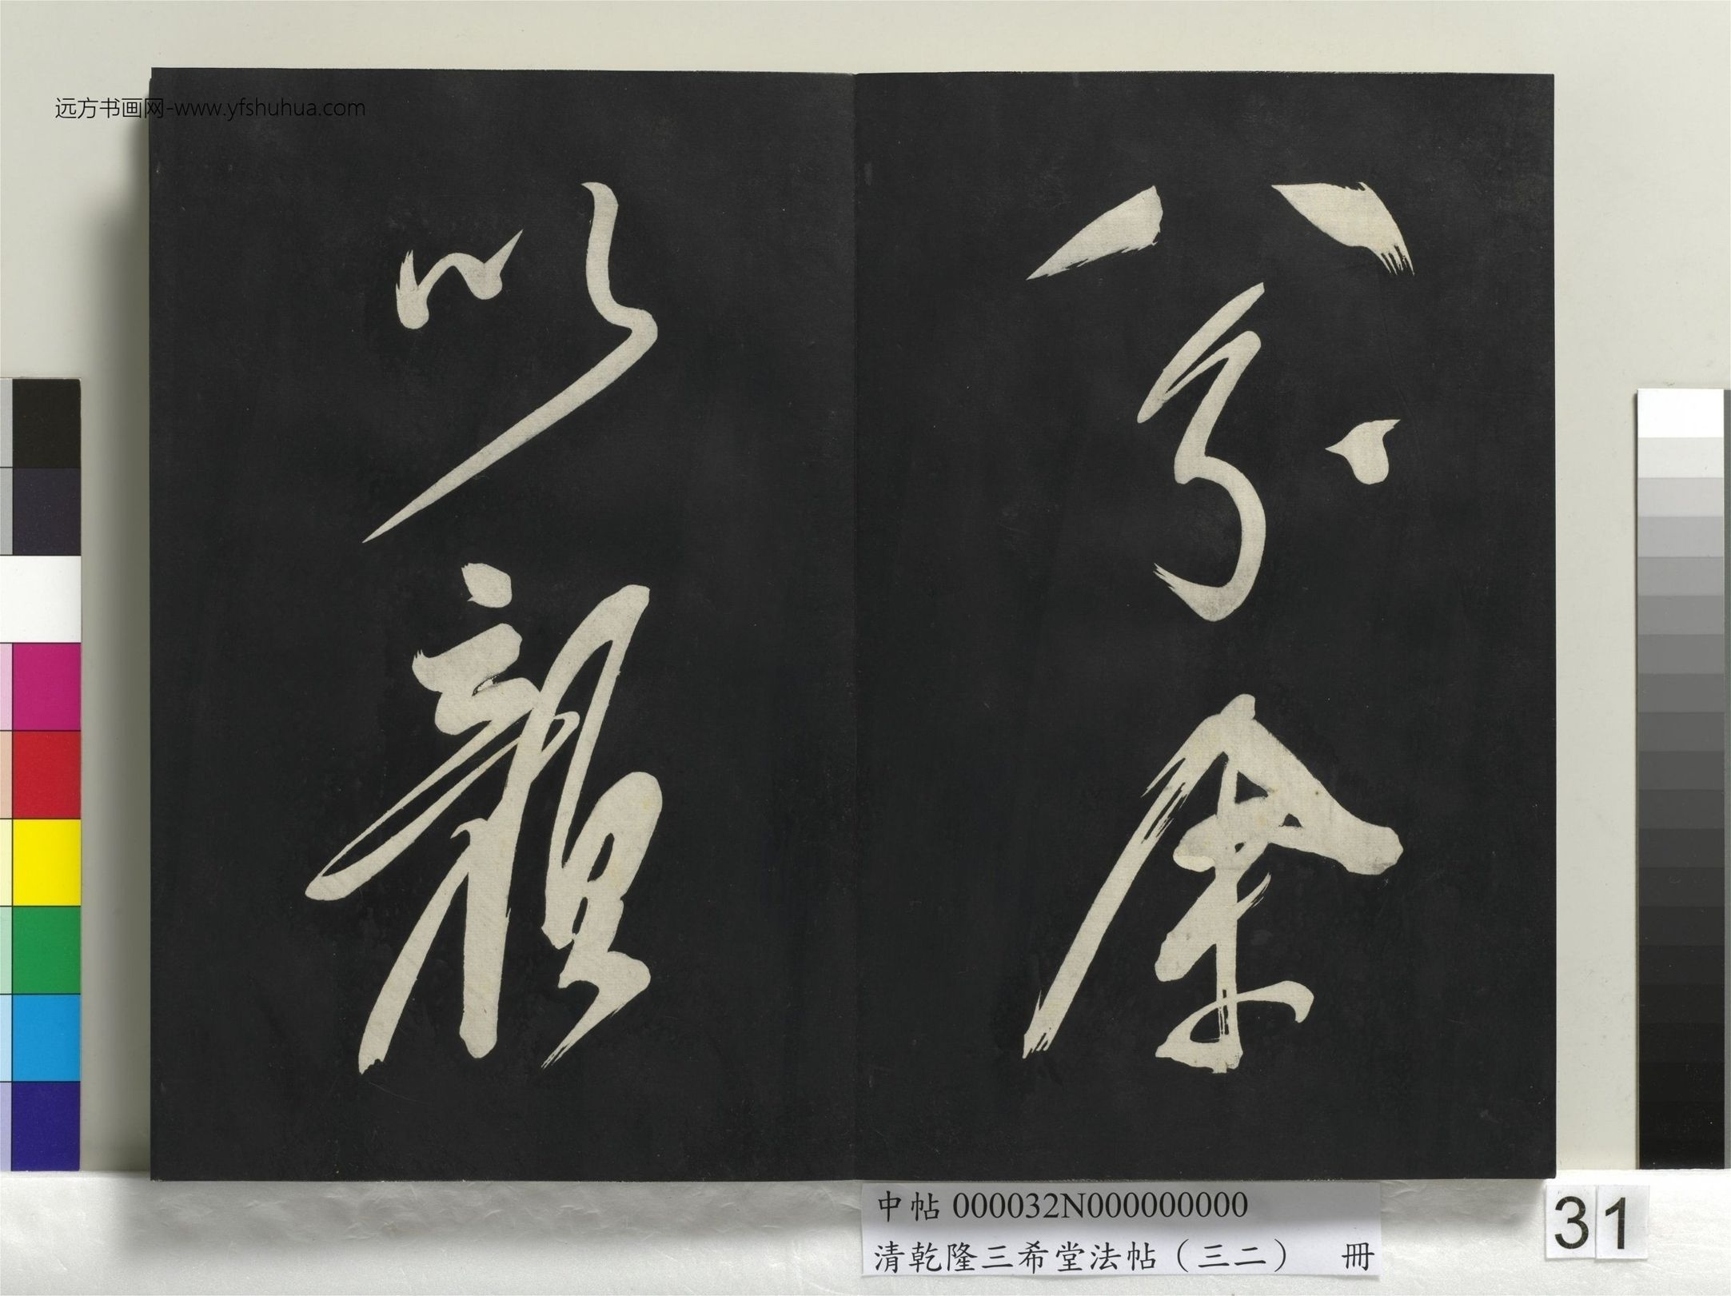 远方书画网-www.yfshuhua.com
兮余
以
中帖 000032N000000000
清乾隆三希堂法帖（三二） 冊
31